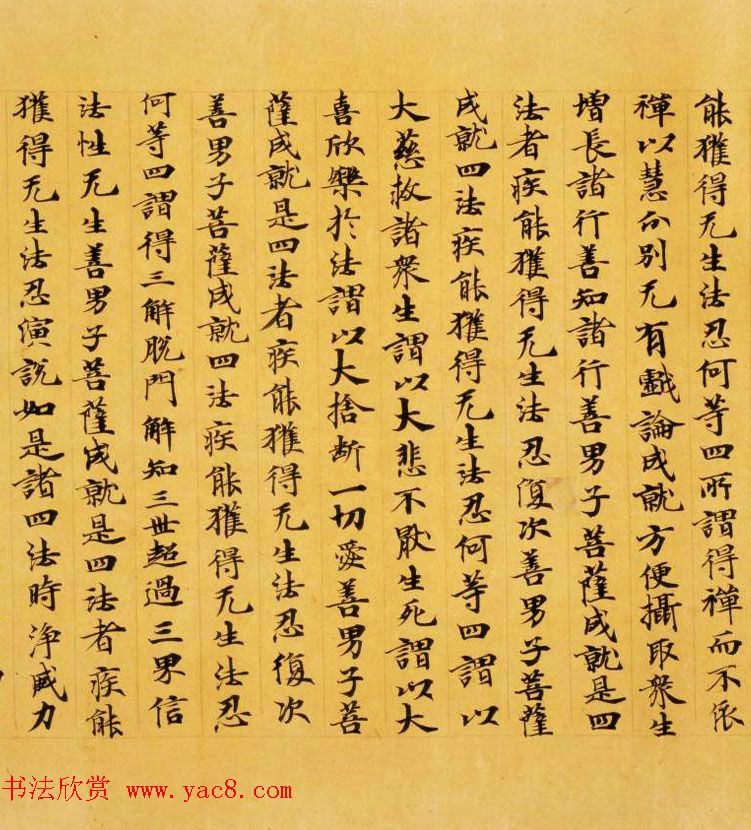 能獲得无生法忍何等四所謂得禪而不依
禪以慧分別无有戲論成就方便攝取衆生
增長諸行善知諸行善男子菩薩成就是四
法者疾能獲得无生法忍復次善男子菩薩
成就四法疾能獲得无生法忍何等四謂以
大慈救諸衆生謂以大悲不猒生死謂以大
喜欣樂於法謂以大捨斷一切愛善男子菩
薩成就是四法者疾能獲得无生法忍復次
善男子菩薩成就四法疾能獲得无生法忍
何等四謂得三解脫門解知三世超過三界信
法性无生善男子菩薩成就是四法者疾能
獲得无生法忍演說如是諸四法時淨威力
书法欣赏 www.yac8.com